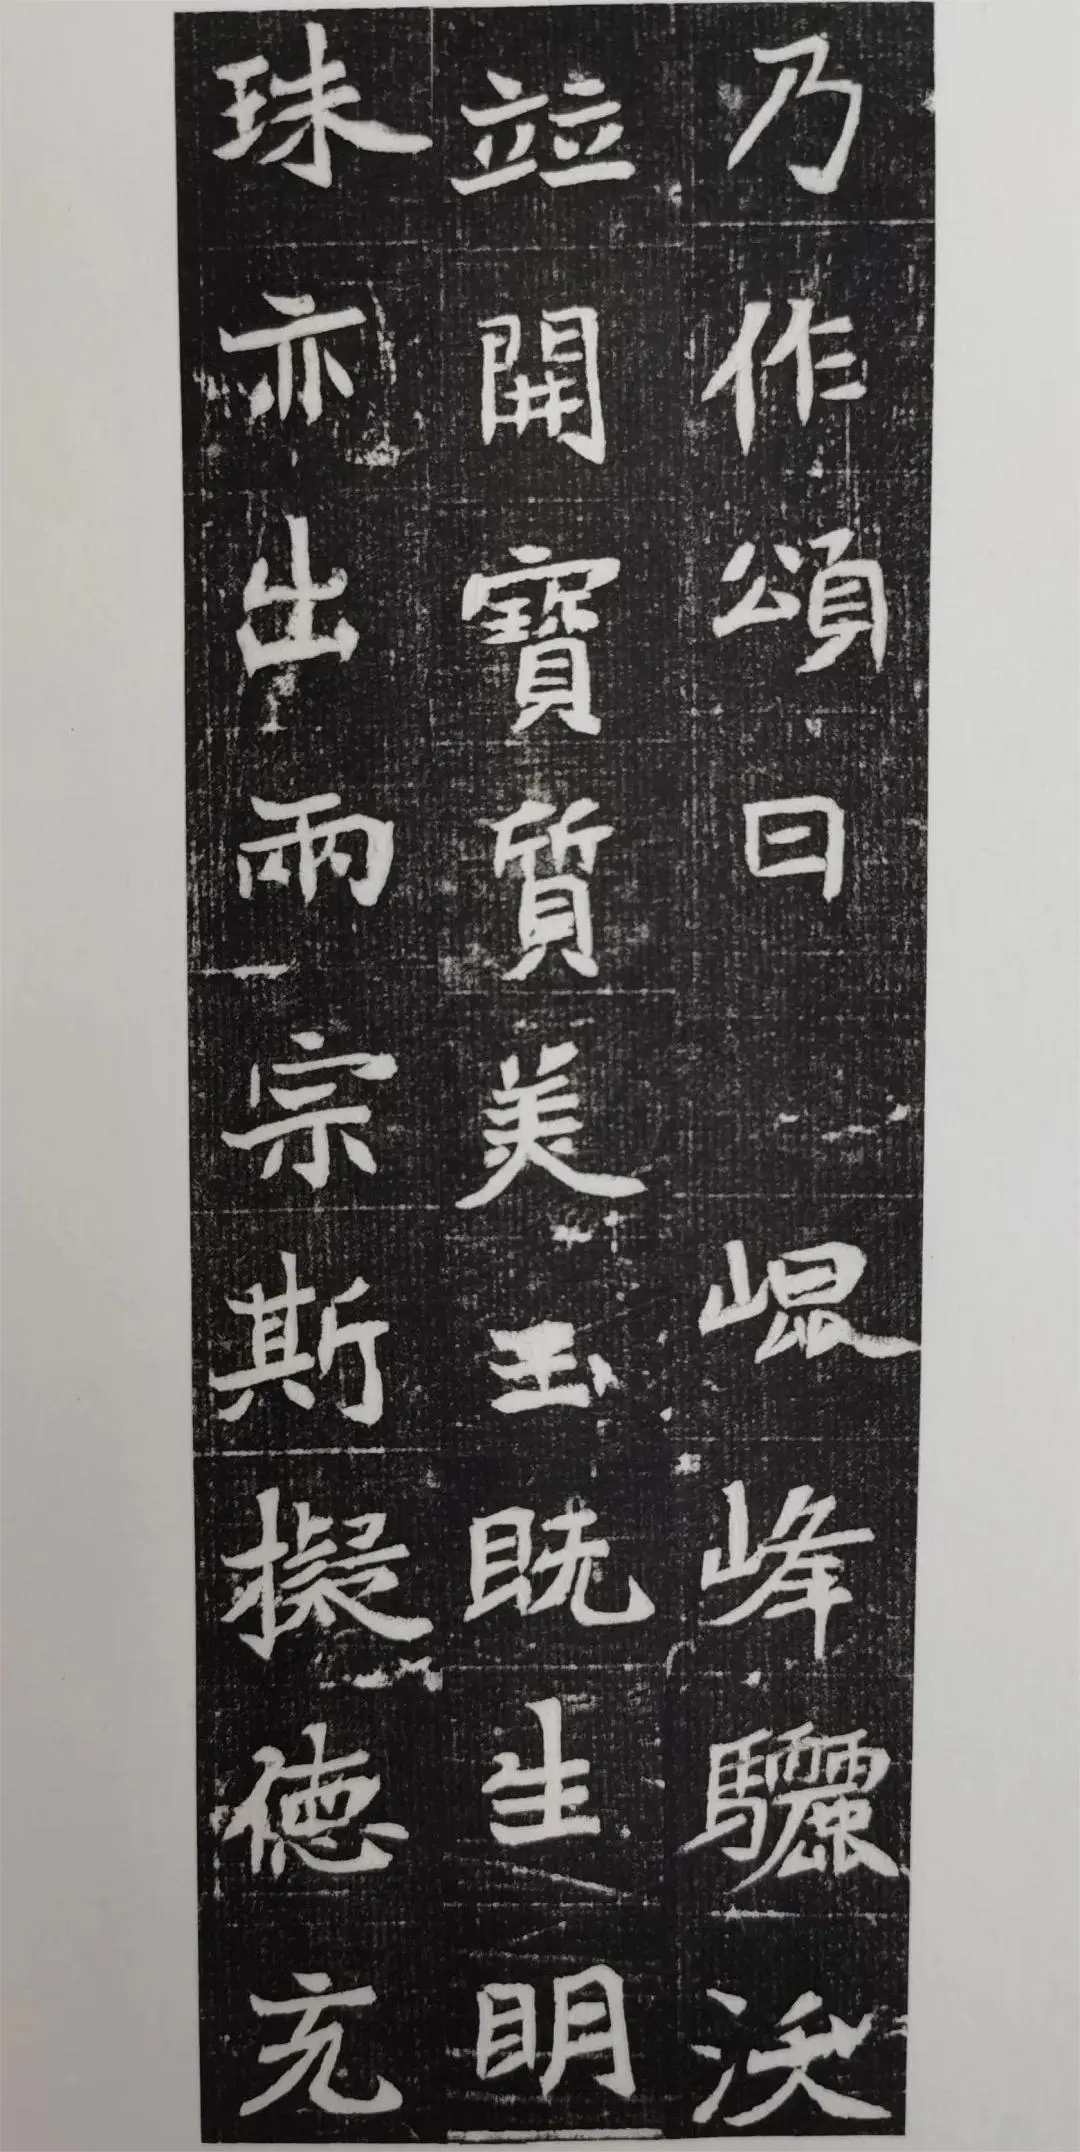 乃作頌曰崐峰驪沃
竝開寶質美玉既生明
珠亦出兩宗斯擬德充